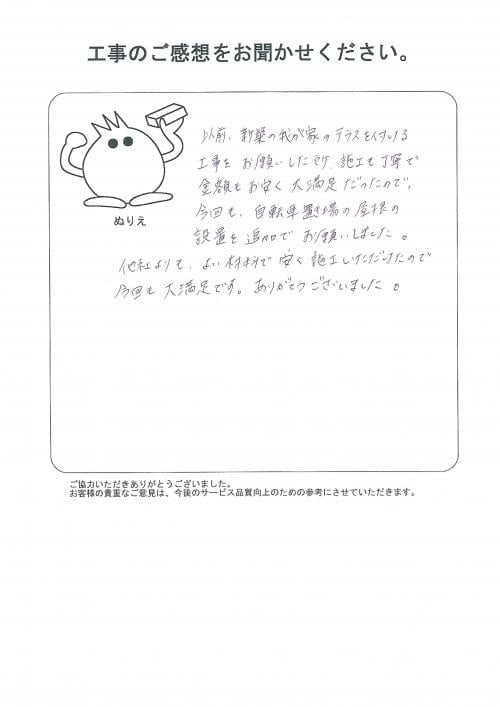 工事のご感想をお聞かせください。
ぬりえ
以前、新築の我が家のテラスを付ける
工事をお願いした所、施工も丁寧で
金額もお安く大満足だったので、
今回も、自転車置き場の屋根の
設置を追加でお願いしました。
他社よりも、よい材料で安く施工いただけたので
今回も大満足です。ありがとうございました。
ご協力いただきありがとうございました。
お客様の貴重なご意見は、今後のサービス品質向上のための参考にさせていただきます。